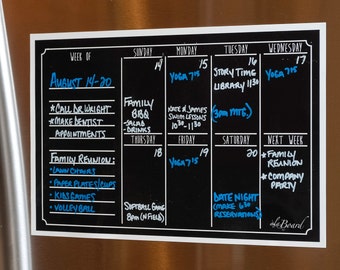 WEEK OF
AUGUST 14-20
* CALL DR WRIGHT
* MAKE DENTIST
APPOINTMENTS
FAMILY REUNION:
- LAWN CHAIRS
- PAPER PLATES/CUPS
- KIDS GAMES
- VOLLEYBALL
SUNDAY
14
FAMILY
BBQ
- SALAD
- DRINKS
MONDAY
15
YOGA 7:15
KATE & JAMES
SWIM LESSONS
10:30-11:30
TUESDAY
16
STORY TIME
LIBRARY 11:30
WEDNESDAY
17
YOGA 7:15
THURSDAY
18
SOFTBALL GAME
8AM (N FIELD)
FRIDAY
19
YOGA 7:15
SATURDAY
20
DATE NIGHT
(MAKE 6:30
RESERVATIONS)
NEXT WEEK
* FAMILY
REUNION
* COMPANY
PARTY
Board